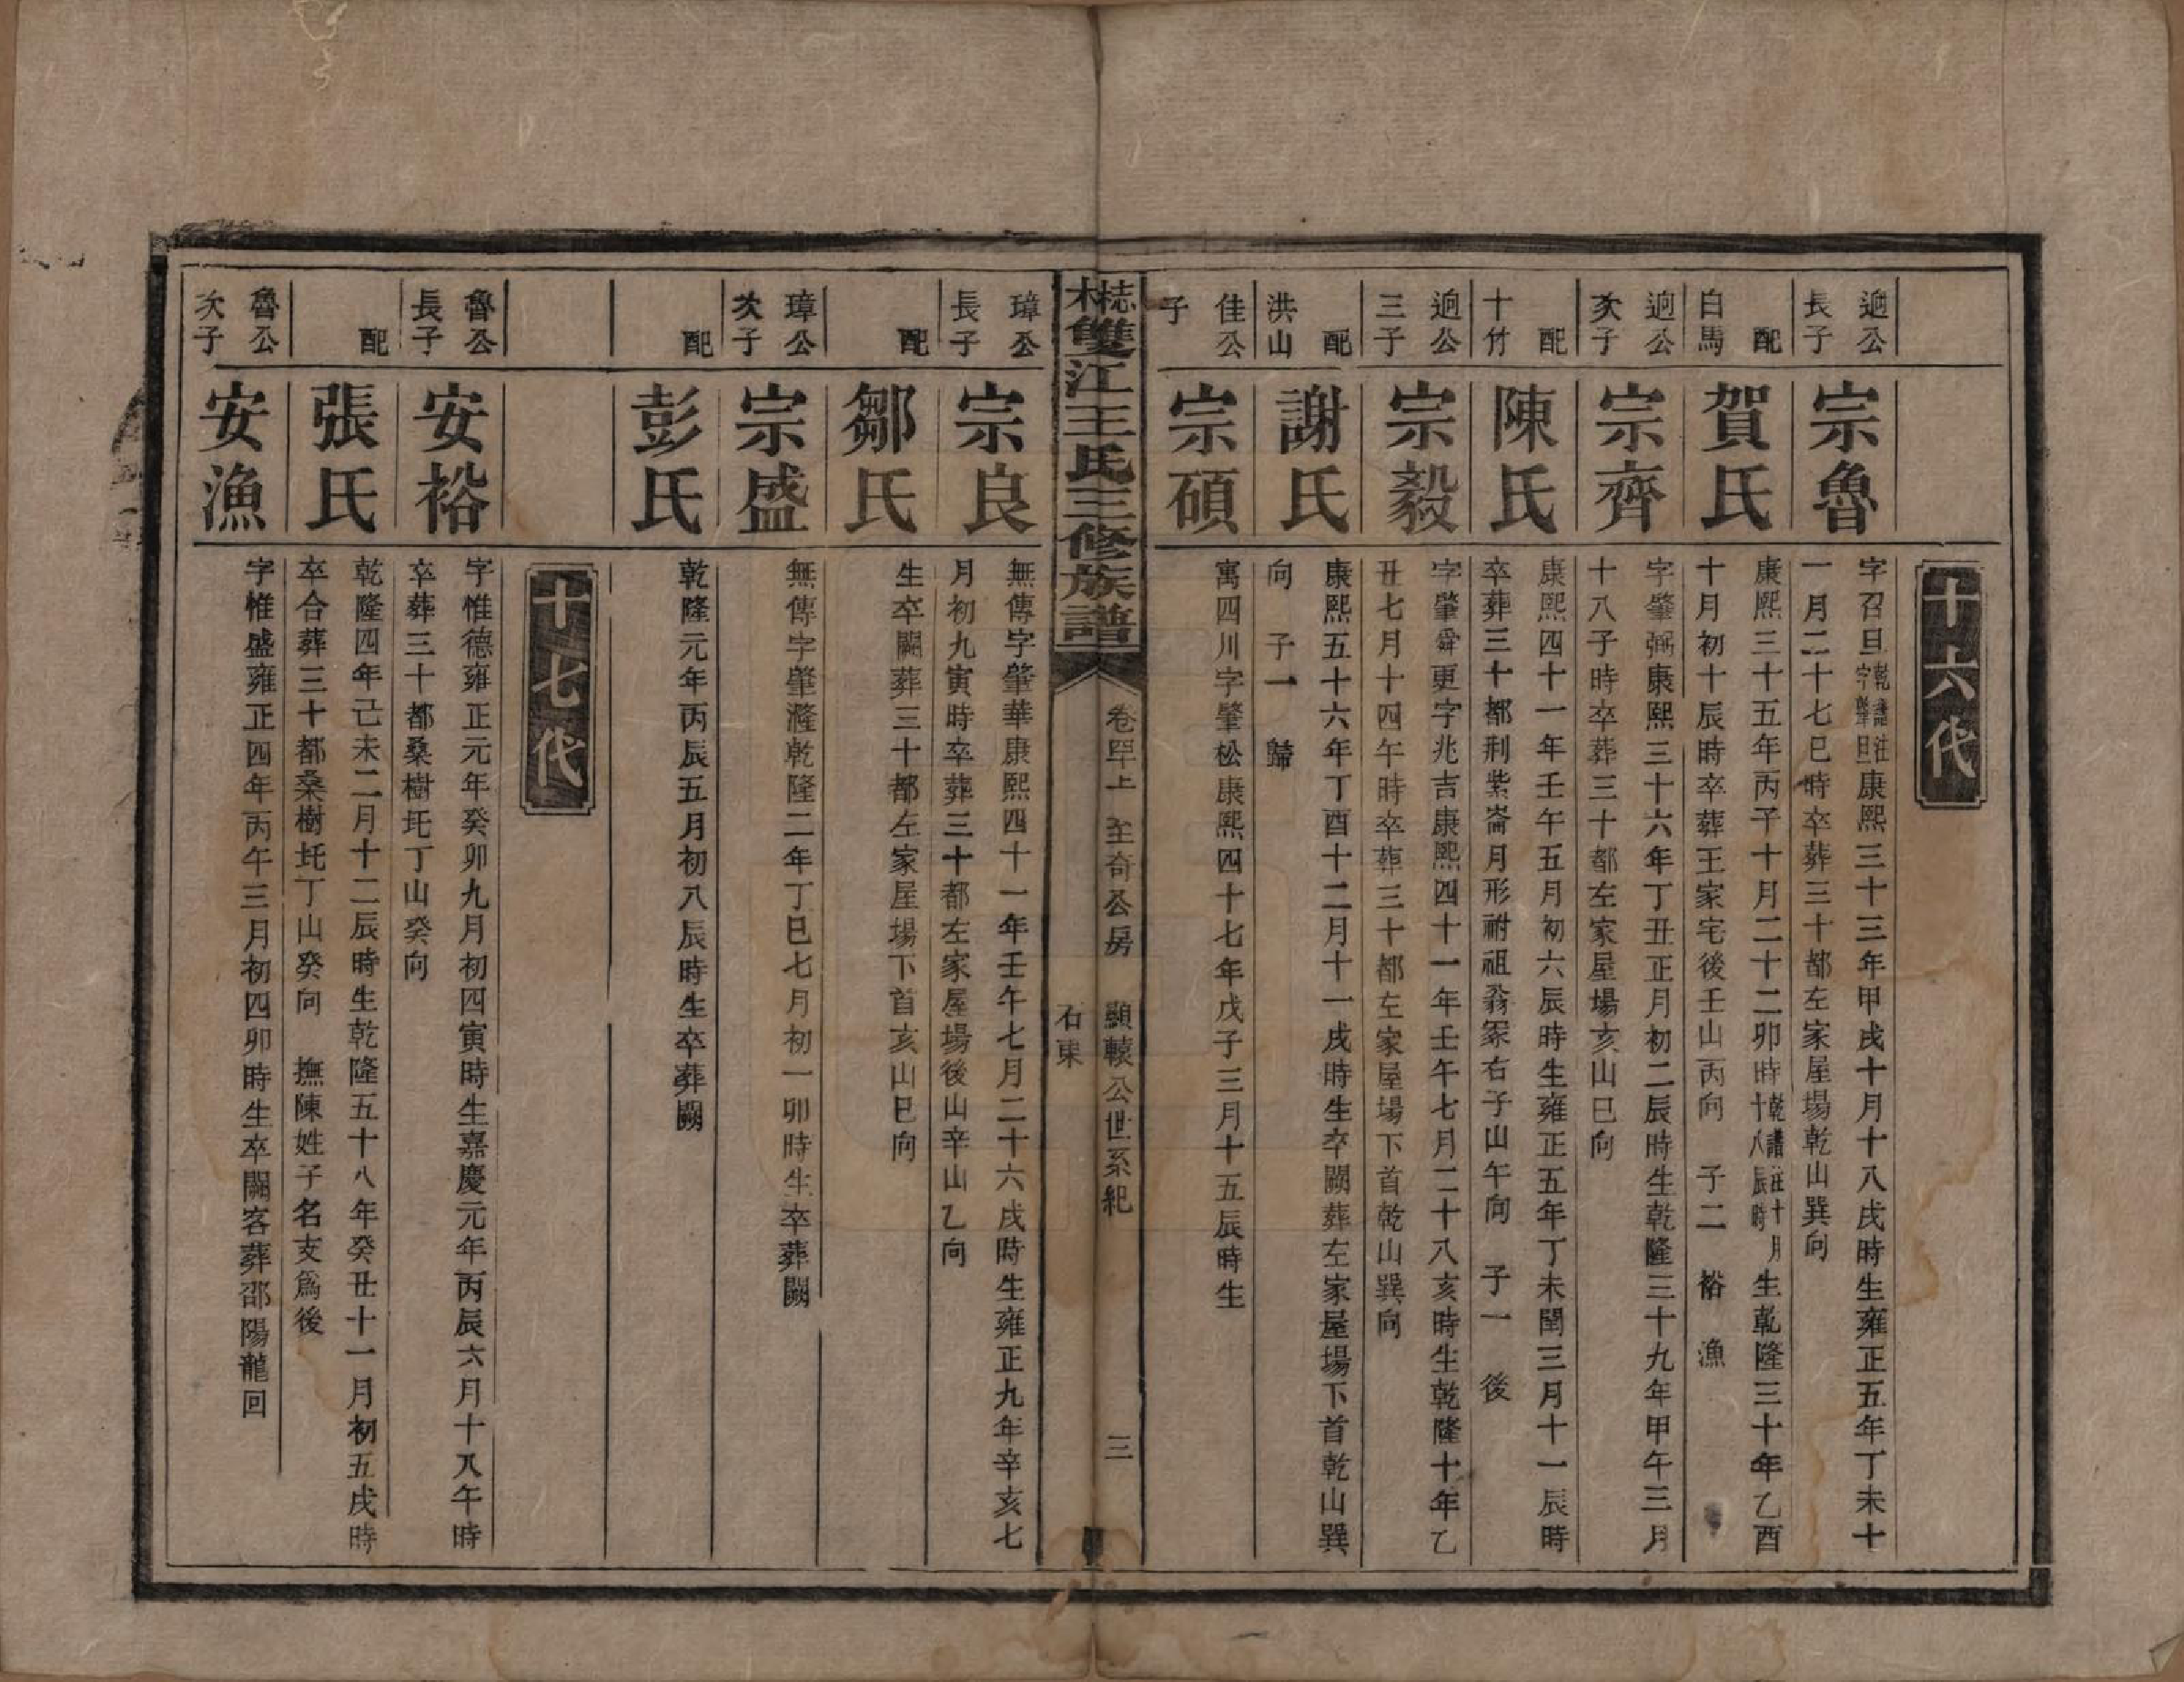 十六代
逈公長子
宗魯
字召旦乾譜注字肇旦康熙三十三年甲戌十月十八戌時生雍正五年丁未十
一月二十七巳時卒葬三十都左家屋場乾山巽向
配白馬
賀氏
康熙三十五年丙子十月二十二卯時乾譜註十月十八辰時生乾隆三十年乙酉
十月初十辰時卒葬王家宅後壬山丙向 子二 裕 漁
逈公次子
宗齊
字肇弼康熙三十六年丁丑正月初二辰時生乾隆三十九年甲午三月
十八子時卒葬三十都左家屋場亥山巳向
配十竹
陳氏
康熙四十一年壬午五月初六辰時生雍正五年丁未閏三月十一辰時
卒葬三十都荆紫崙月形祔祖翁冢右子山午向 子一 後
逈公三子
宗毅
字肇舜更字兆吉康熙四十一年壬午七月二十八亥時生乾隆十年乙
丑七月十四午時卒葬三十都左家屋場下首乾山巽向
配洪山
謝氏
康熙五十六年丁酉十二月十一戌時生卒闕葬左家屋場下首乾山巽
向 子一 歸
佳公子
宗碩
寓四川字肇松康熙四十七年戊子三月十五辰時生
雙江王氏三修族譜
卷四上 至奇公房 顯轅公世系紀 三
石東
璋公長子
宗良
無傳字肇華康熙四十一年壬午七月二十六戌時生雍正九年辛亥七
月初九寅時卒葬三十都左家屋場後山辛山乙向
配
鄒氏
生卒闕葬三十都左家屋場下首亥山巳向
璋公次子
宗盛
無傳字肇漋乾隆二年丁巳七月初一卯時生卒葬闕
配
彭氏
乾隆元年丙辰五月初八辰時生卒葬闕
十七代
魯公長子
安裕
字惟德雍正元年癸卯九月初四寅時生嘉慶元年丙辰六月十八午時
卒葬三十都桑樹圫丁山癸向
配
張氏
乾隆四年己未二月十二辰時生乾隆五十八年癸丑十一月初五戌時
卒合葬三十都桑樹圫丁山癸向 撫陳姓子名支爲後
魯公次子
安漁
字惟盛雍正四年丙午三月初四卯時生卒闕客葬邵陽龍回